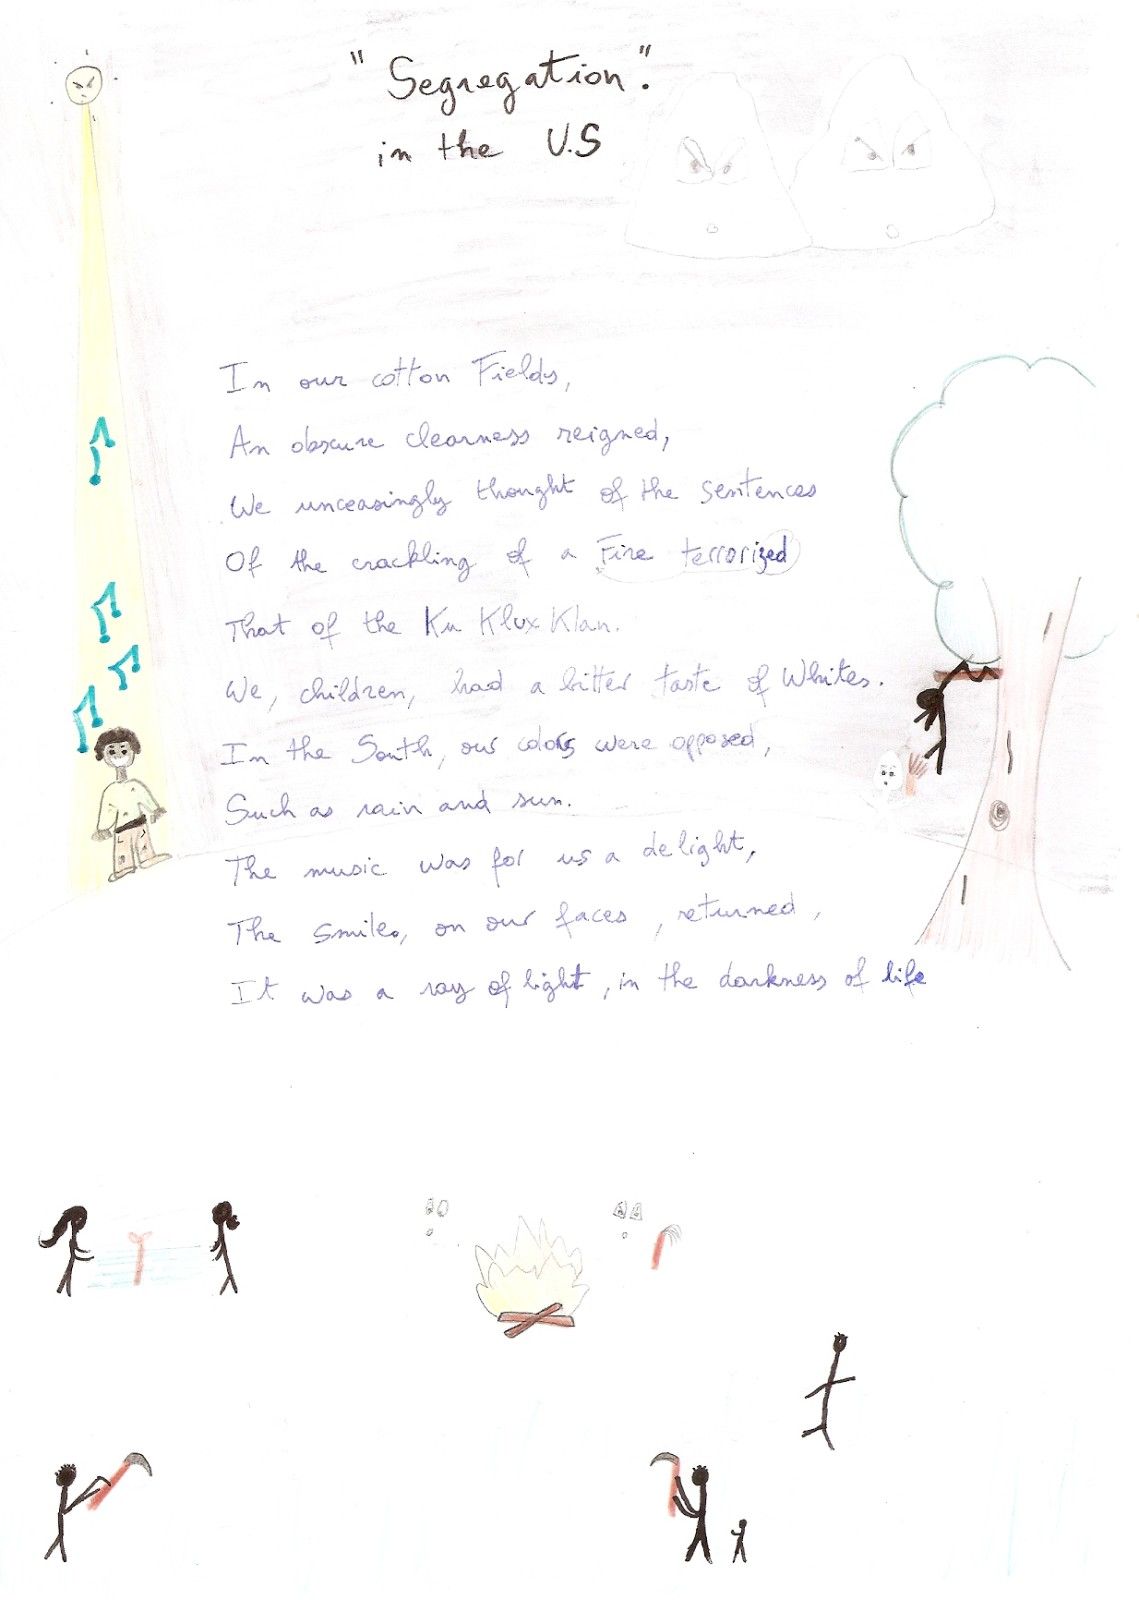 "Segregation".
in the U.S
In our cotton Fields,
An obscure clearness reigned,
We unceasingly thought of the sentences
Of the crackling of a Fire terrorized
That of the Ku Klux Klan.
We, children, had a bitter taste of Whites.
In the South, our colors were opposed,
Such as rain and sun.
The music was for us a delight,
The smiles, on our faces, returned,
It was a ray of light, in the darkness of life